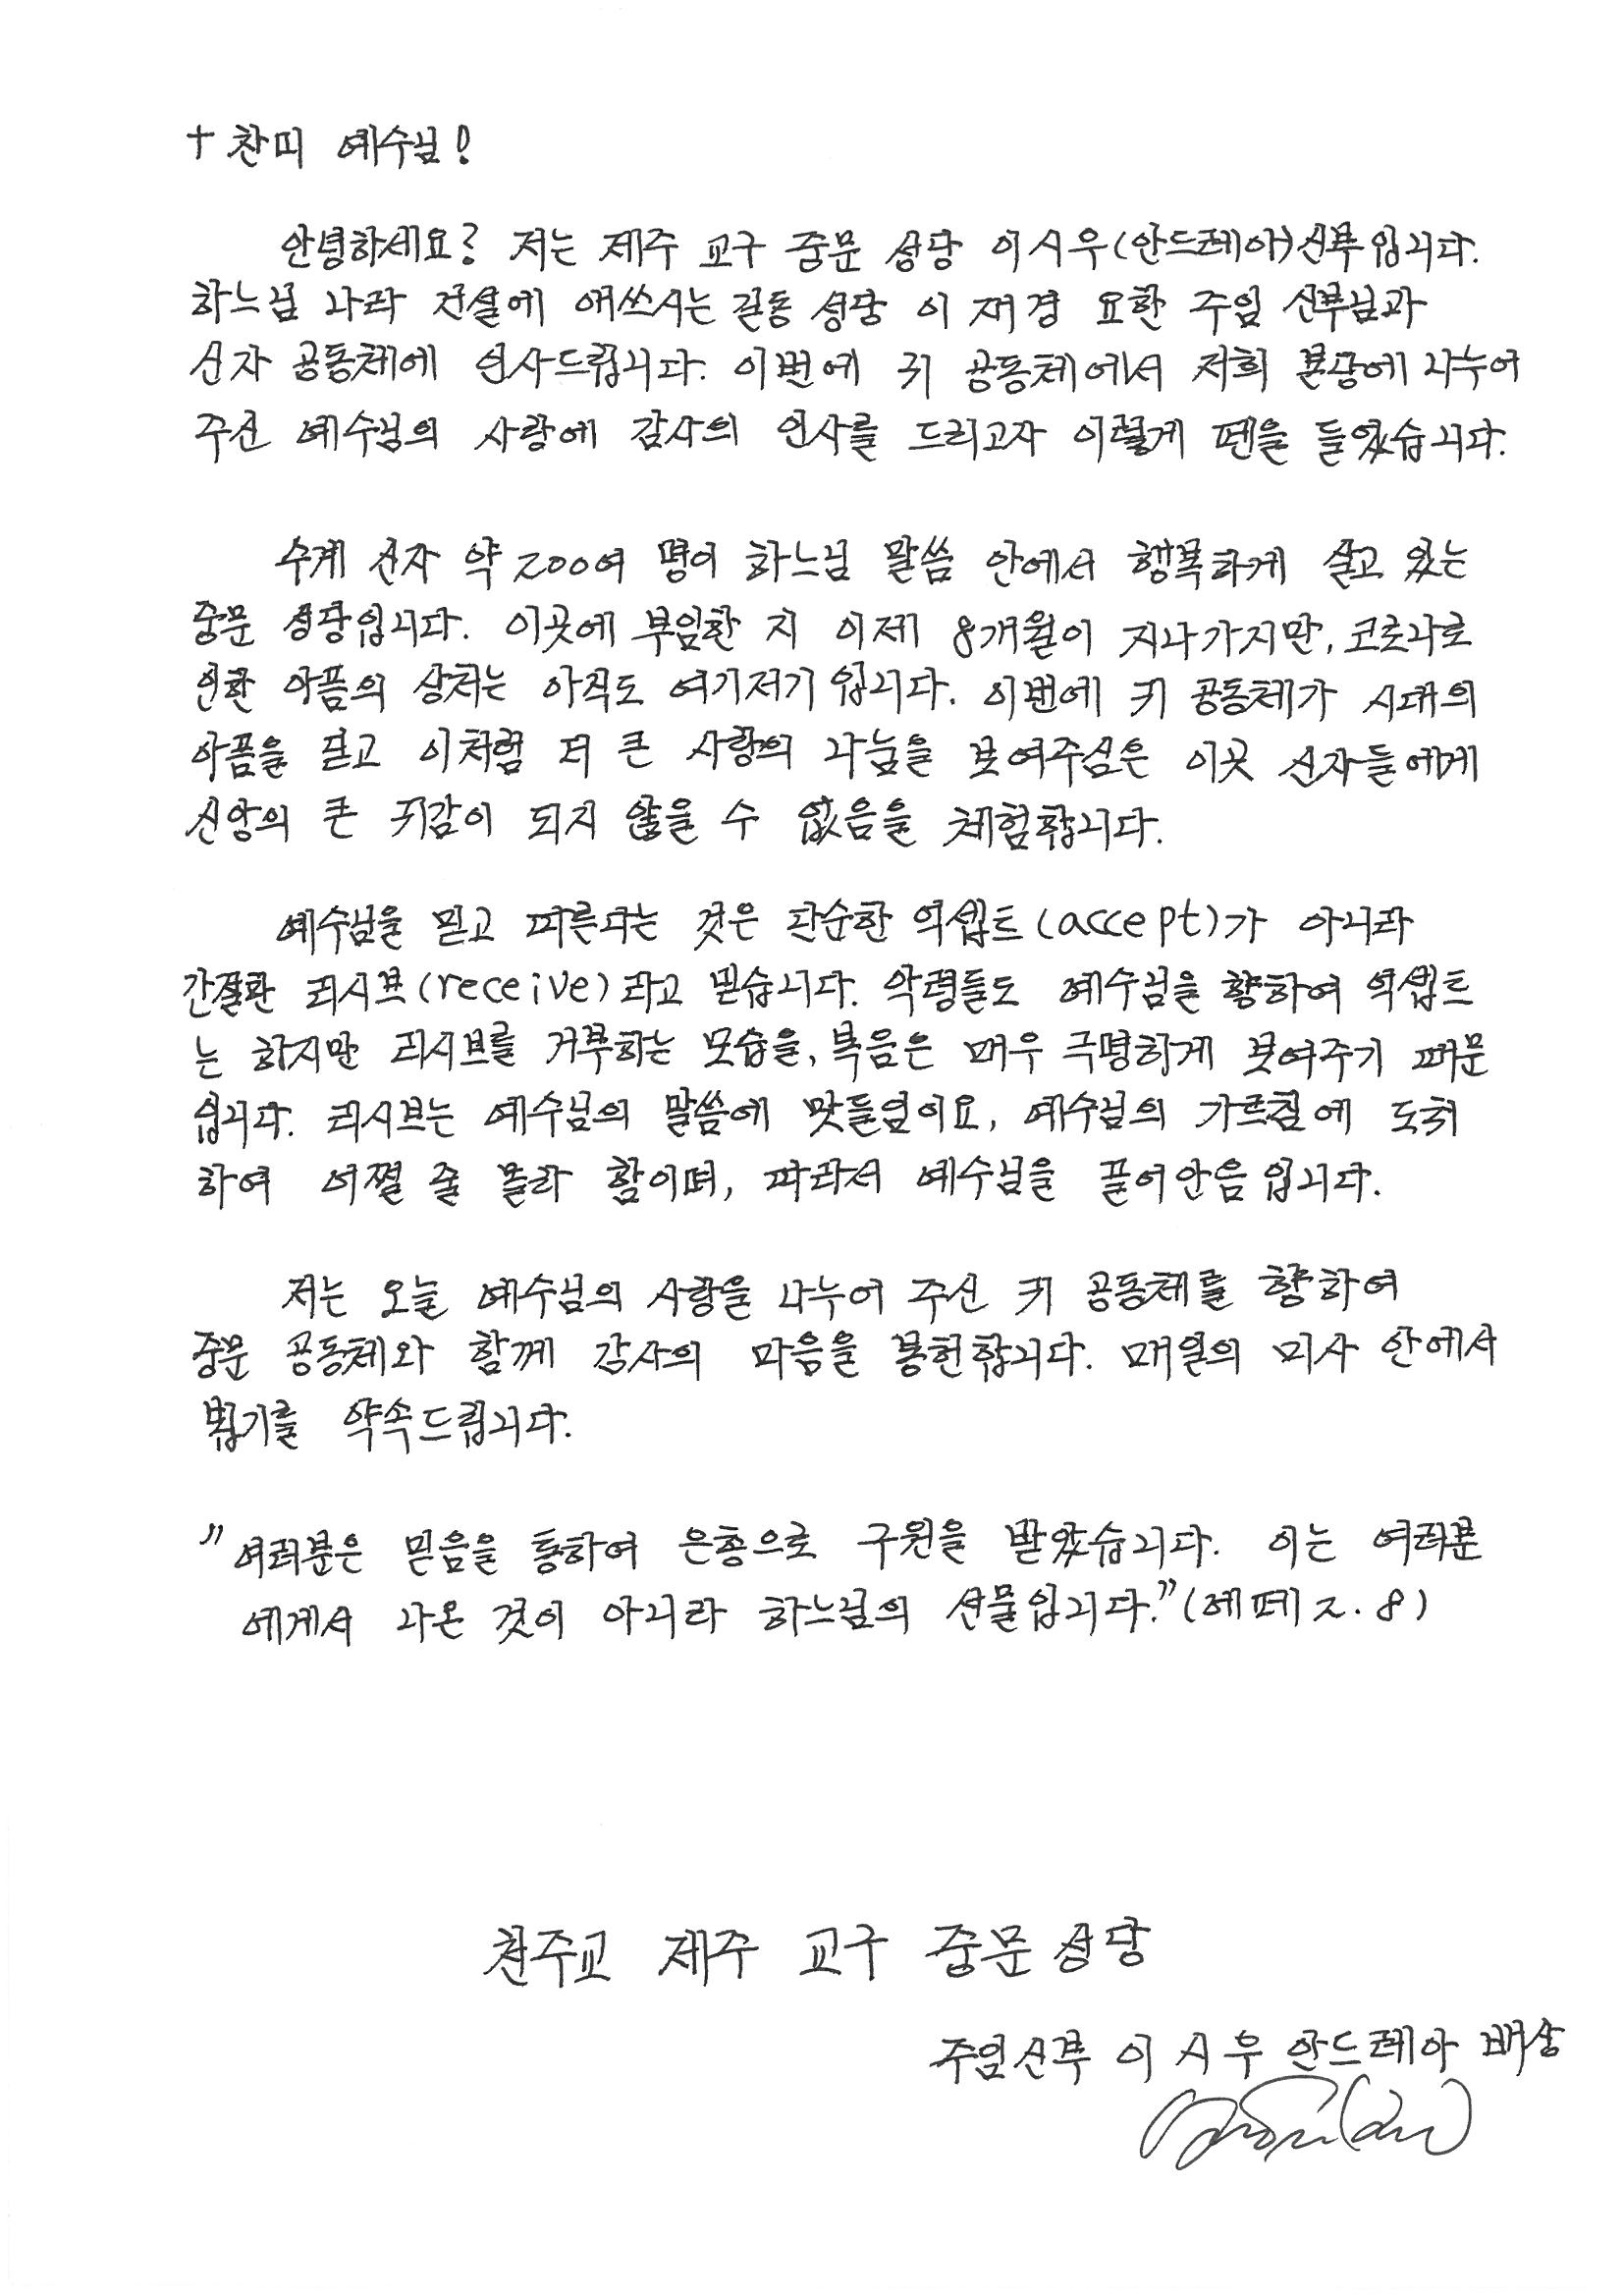 + 찬미 예수님!
안녕하세요? 저는 제주 교구 중문 성당 이시우(안드레아)신부입니다.
하느님 나라 건설에 애쓰시는 길동 성당 이재경 요한 주임 신부님과
신자 공동체에 인사드립니다. 이번에 귀 공동체에서 저희 본당에 나누어
주신 예수님의 사랑에 감사의 인사를 드리고자 이렇게 펜을 들었습니다.
수계 신자 약 200여 명이 하느님 말씀 안에서 행복하게 살고 있는
중문 성당입니다. 이곳에 부임한 지 이제 8개월이 지나가지만, 코로나로
인한 아픔의 상처는 아직도 여기저기입니다. 이번에 귀 공동체가 시대의
아픔을 딛고 이처럼 더 큰 사랑의 나눔을 보여주심은 이곳 신자들에게
신앙의 큰 귀감이 되지 않을 수 없음을 체험합니다.
예수님을 믿고 따른다는 것은 단순한 억셉트(accept)가 아니라
간절한 리시브(receive)라고 믿습니다. 악령들도 예수님을 향하여 억셉트
는 하지만 리시브를 거부하는 모습을, 복음은 매우 극명하게 보여주기 때문
입니다. 리시브는 예수님의 말씀에 맛들임이요, 예수님의 가르침에 도취
하여 어쩔 줄 몰라 함이며, 따라서 예수님을 끌어안음입니다.
저는 오늘 예수님의 사랑을 나누어 주신 귀 공동체를 향하여
중문 공동체와 함께 감사의 마음을 봉헌합니다. 매일의 미사 안에서
뵙기를 약속드립니다.
"여러분은 믿음을 통하여 은총으로 구원을 받았습니다. 이는 여러분
에게서 나온 것이 아니라 하느님의 선물입니다."(에페 2.8)
천주교 제주 교구 중문 성당
주임신부 이 시우 안드레아 배상